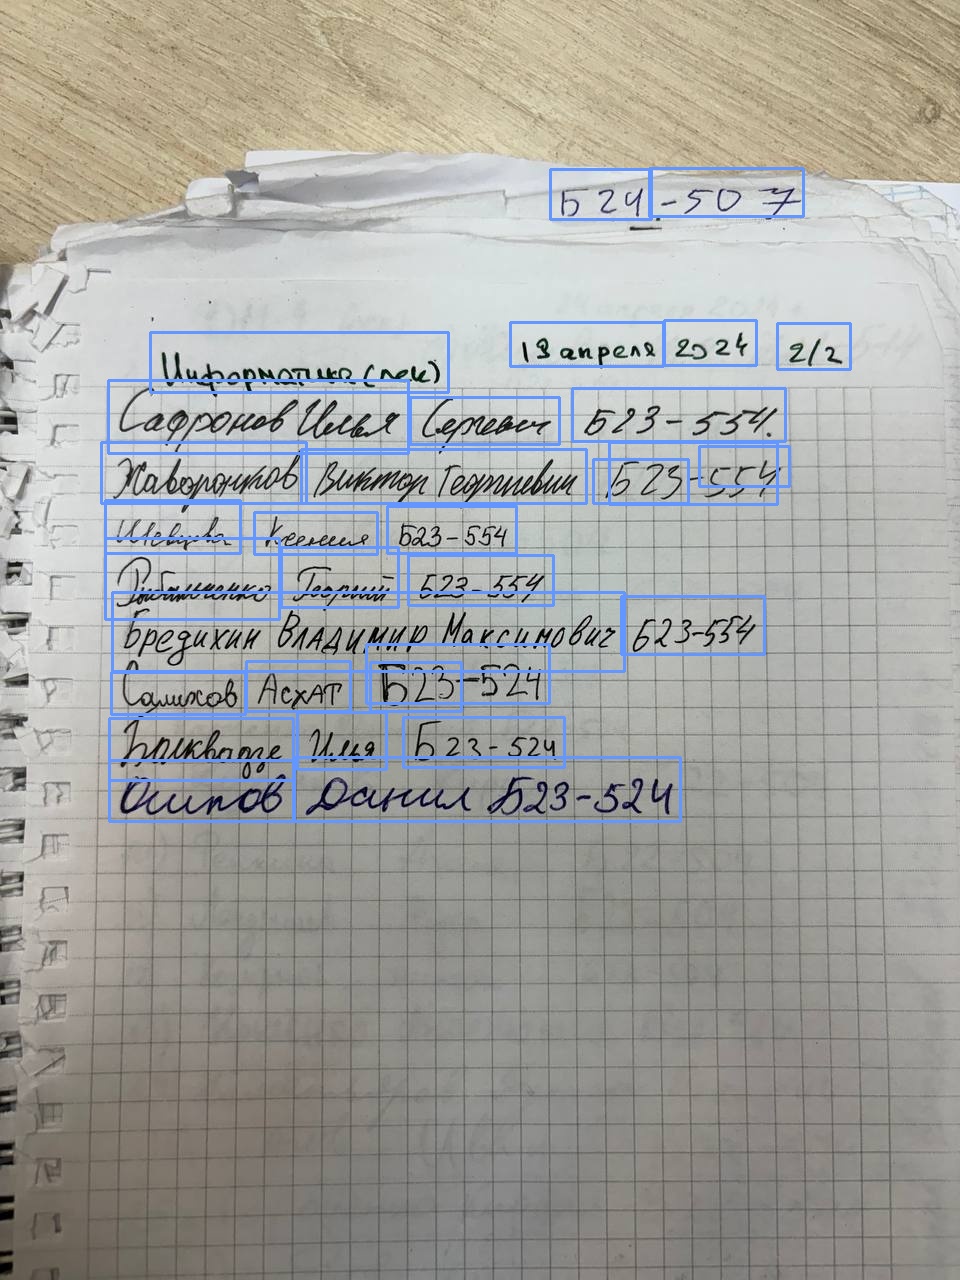 Б24-507
Информатика (лек) 13 апреля 2024 2/2
Сафронов Илья Сергеевич Б23-554.
Жаворонков Виктор Георгиевич Б23-554
Шевцова Ксения Б23-554
Рыбальченко Георгий Б23-554
Бредихин Владимир Максимович Б23-554
Салихов Асхат Б23-524
Илья Б23-524
Осипов Данил Б23-524